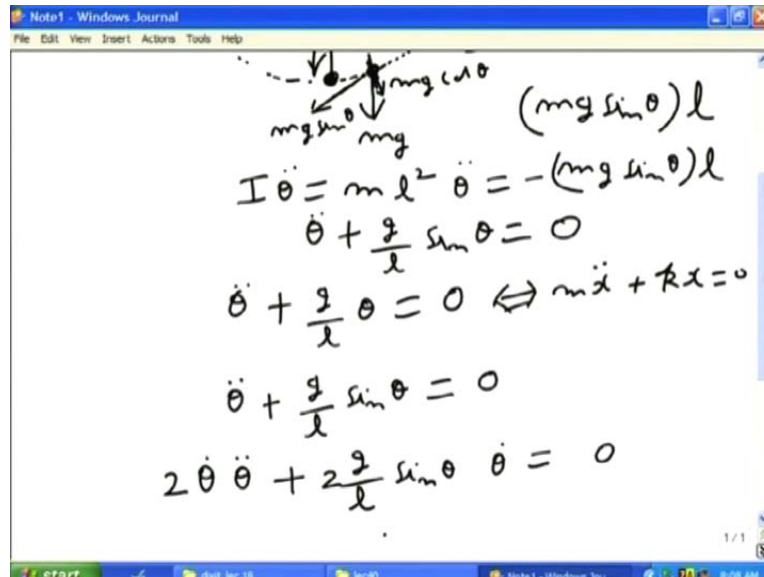 Note1 - Windows Journal
File Edit View Insert Actions Tools Help
mg cos θ
mg sin θ
mg
(mg sin θ) l
I θ̈ = m l² θ̈ = -(mg sin θ) l
θ̈ + g/l sin θ = 0
θ̈ + g/l θ = 0 ⇔ mẍ + kx = 0
θ̈ + g/l sin θ = 0
2 θ̇ θ̈ + 2 g/l sin θ θ̇ = 0
1/1
start
lec40
Note1 - Windows Jou...
8:08 AM